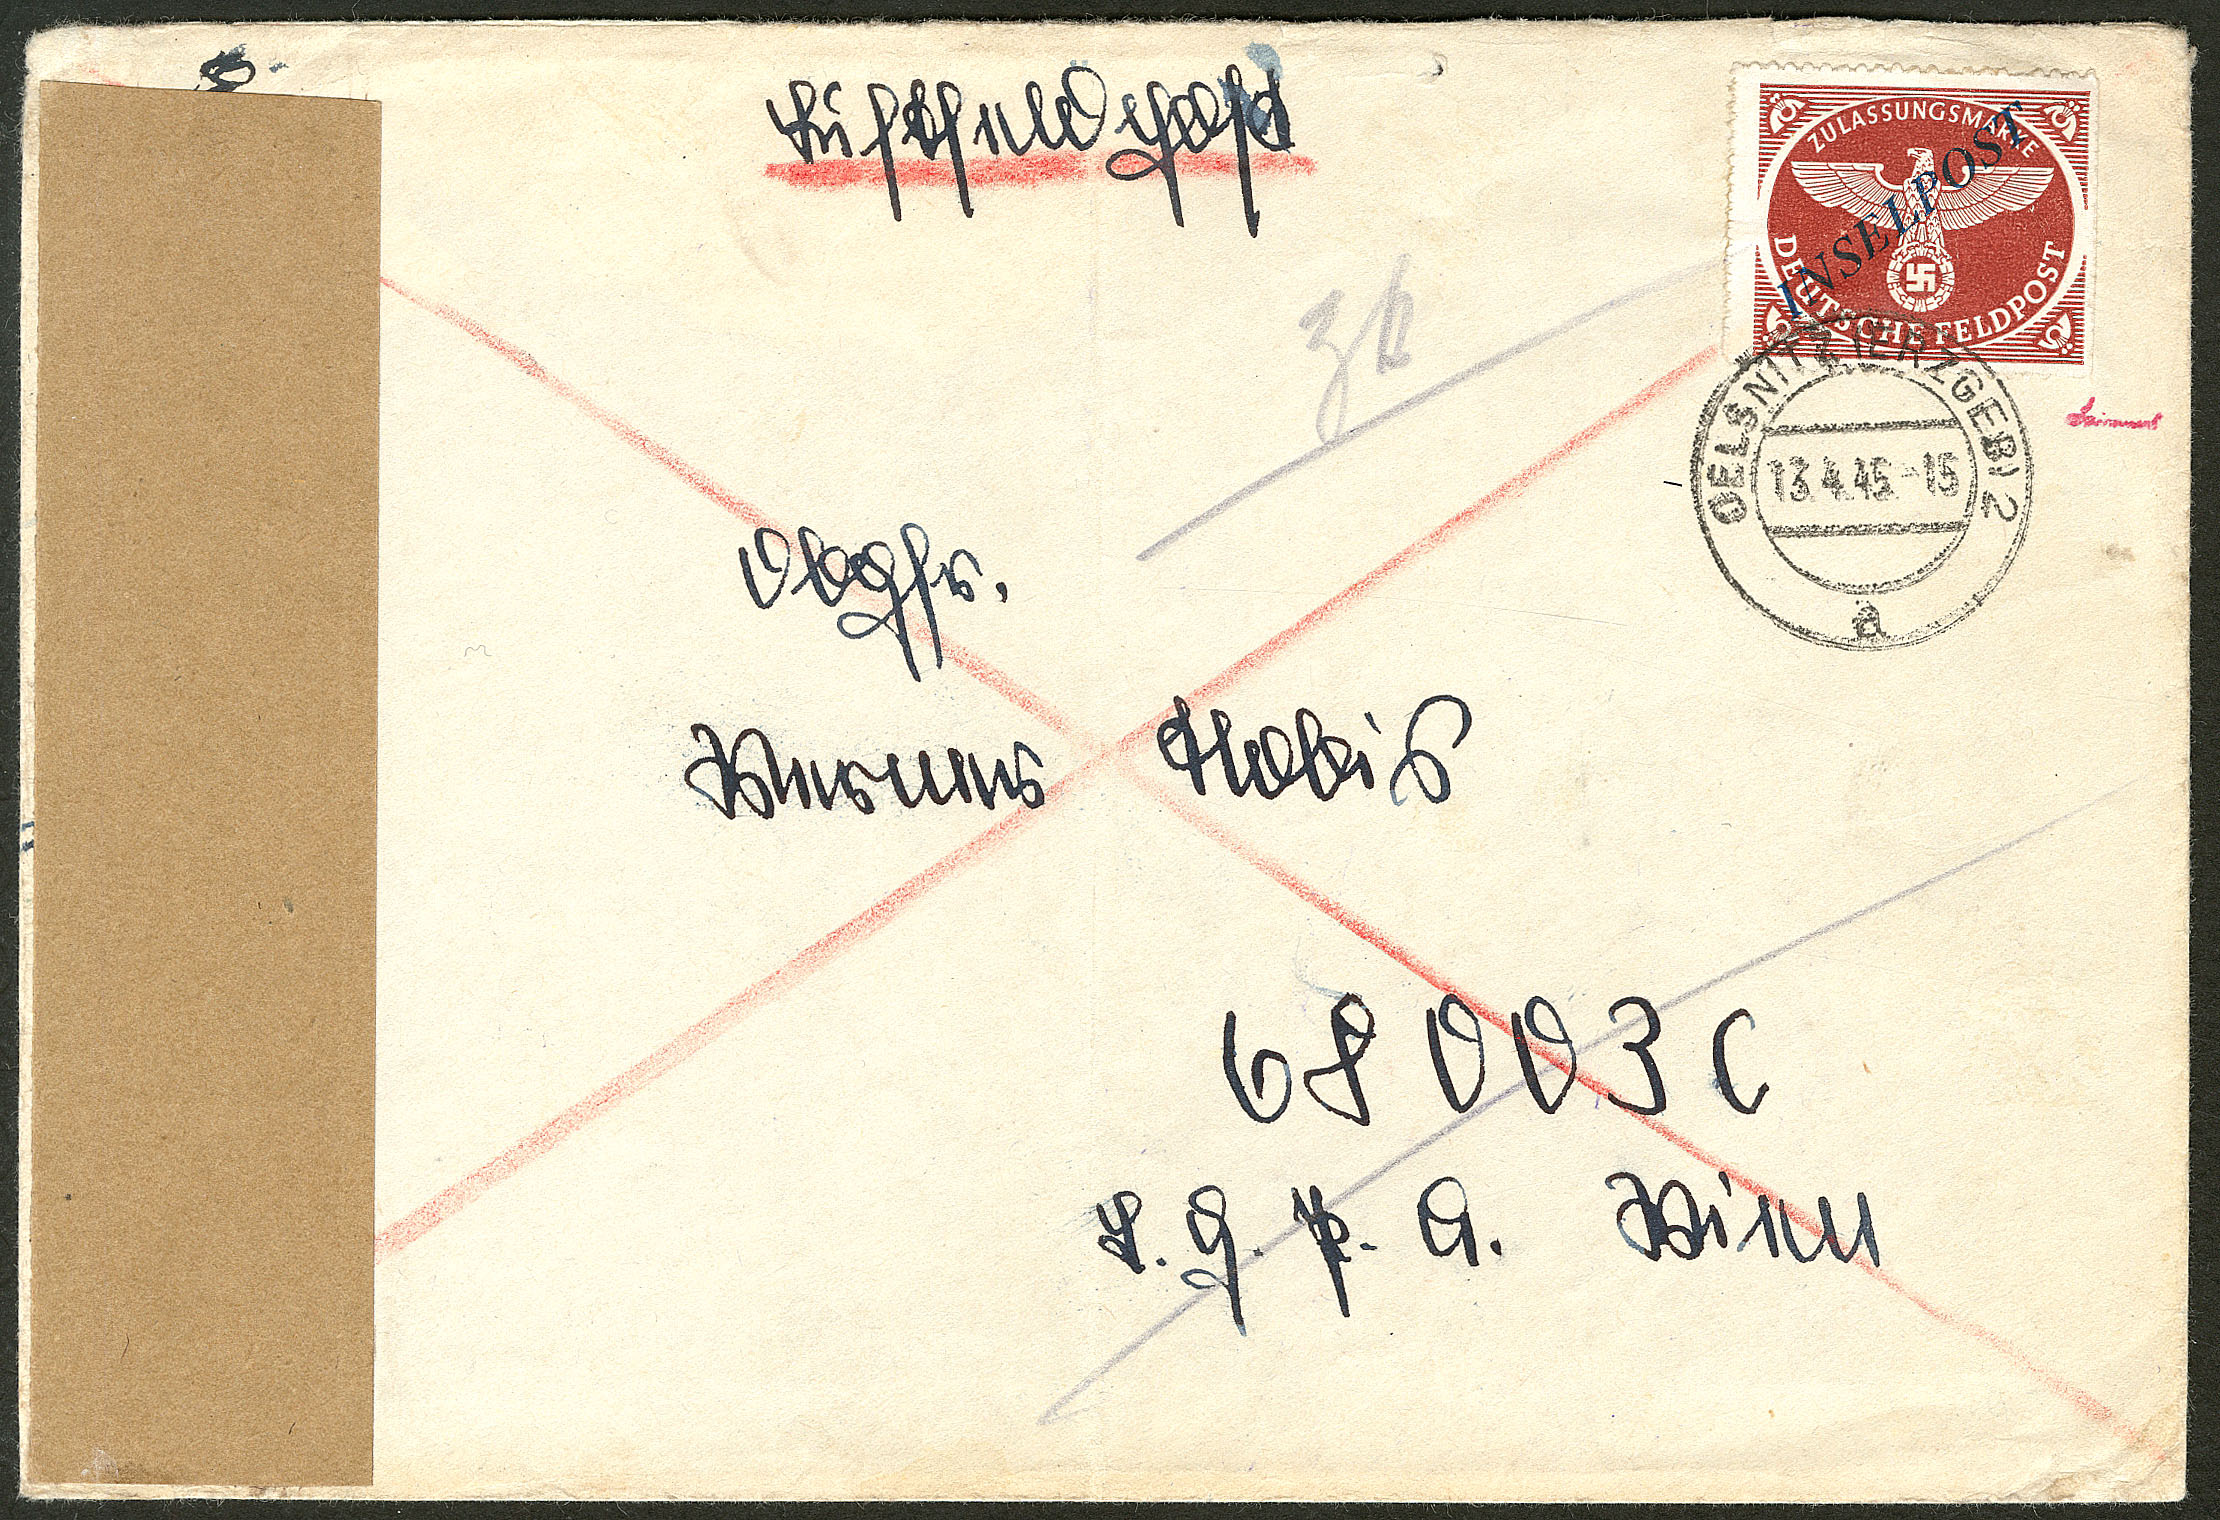 Luftfeldpost
ZULASSUNGSMARKE
INSELPOST
DEUTSCHE FELDPOST
OELSNITZ (ERZGEB) 2
13.4.45-15
a
Obgfr.
Werner
68003 C
L.G.P.A. Wien